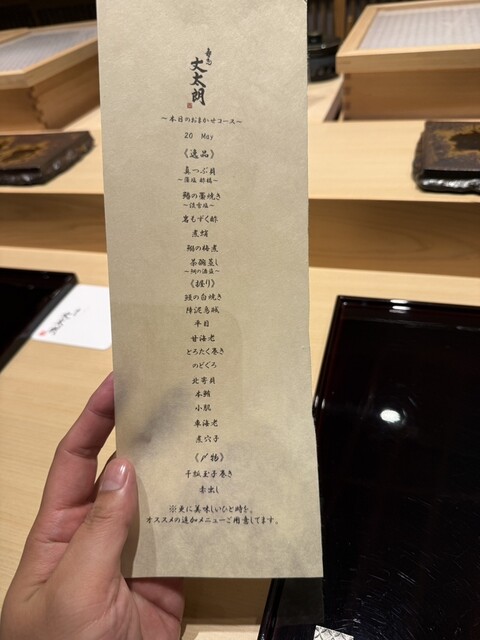 丈太朗
～本日のおまかせコース～
20 May
《逸品》
真つぶ貝
～藻塩 酢橘～
～淡雪塩～
岩もずく酢
煮蛸
茶碗蒸し
《握り》
鰻の白焼き
障泥烏賊
平目
甘海老
とろたく巻き
のどぐろ
北寄貝
本鮪
小肌
車海老
煮穴子
《〆物》
干瓢玉子巻き
赤出し
※更に美味しいひと時を。
オススメの追加メニューご用意してます。